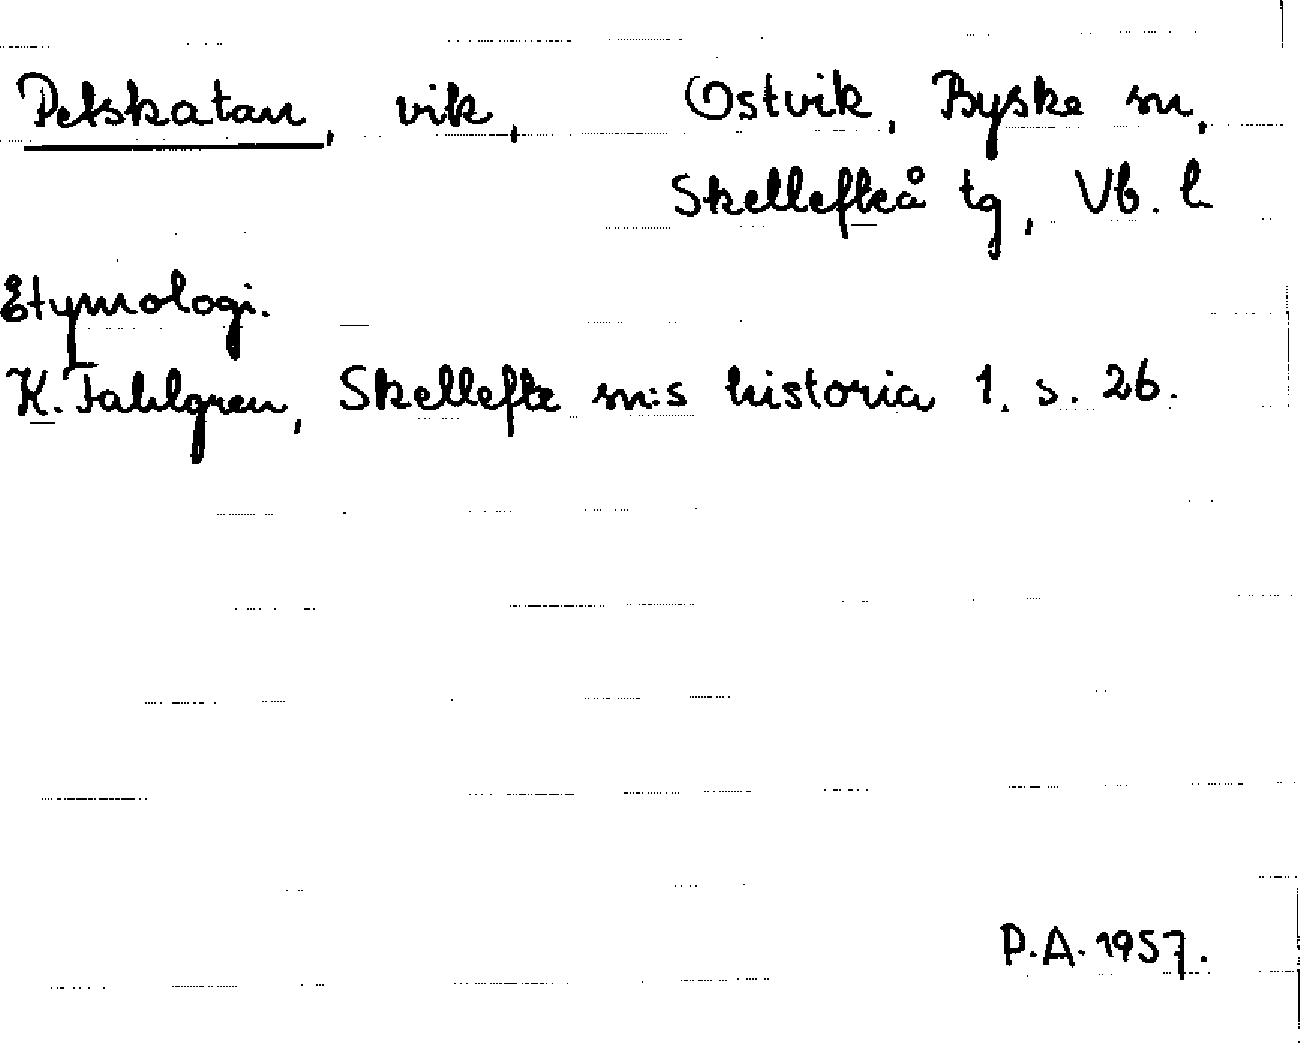 Petskatan, vik, Ostvik, Byske sn,
Skellefteå tg, Vb. l
Etymologi.
K. Fahlgren, Skellefte sn:s historia 1. s. 26.
P.A. 1957.